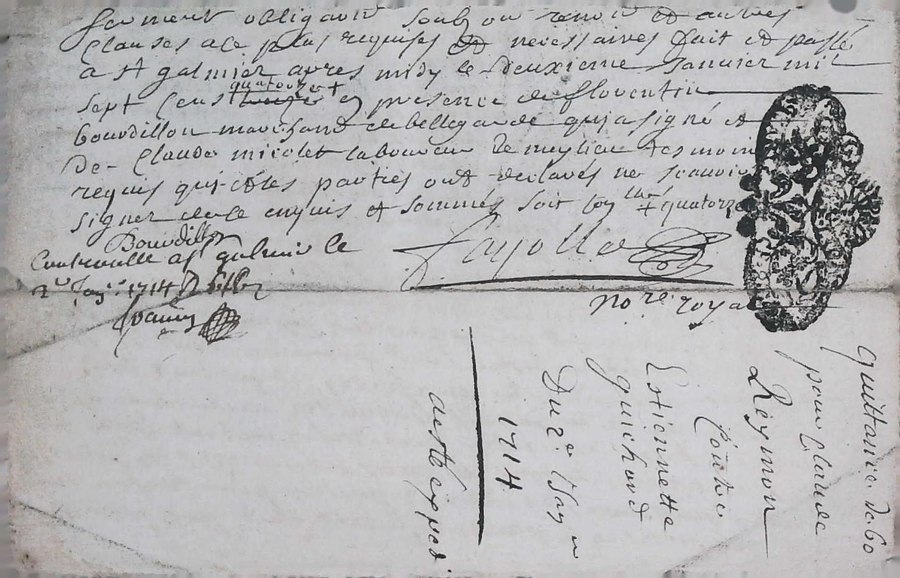 serment obligaon soubz on renon et autres
clauses a le plus requises et necessaires fait et passé
a st galmier apres midy le deuxieme Janvier mil
sept cens quatorze + en presence de florentin
bourdillon marchand de bellegarde qui a signé et
de Claude micolet laboureur de tesmoins
requis qui et les parties ont declarés ne scavoir
signer de ce enquis et sommés soit + quatorze
Bourdillon
Controllé a st galmier le
2e Janr 1714
fayolle
nore royal
quittance de 60
pour Claude
Reymon
Contre
Estiennette
guichard
Du 2e Jay
1714